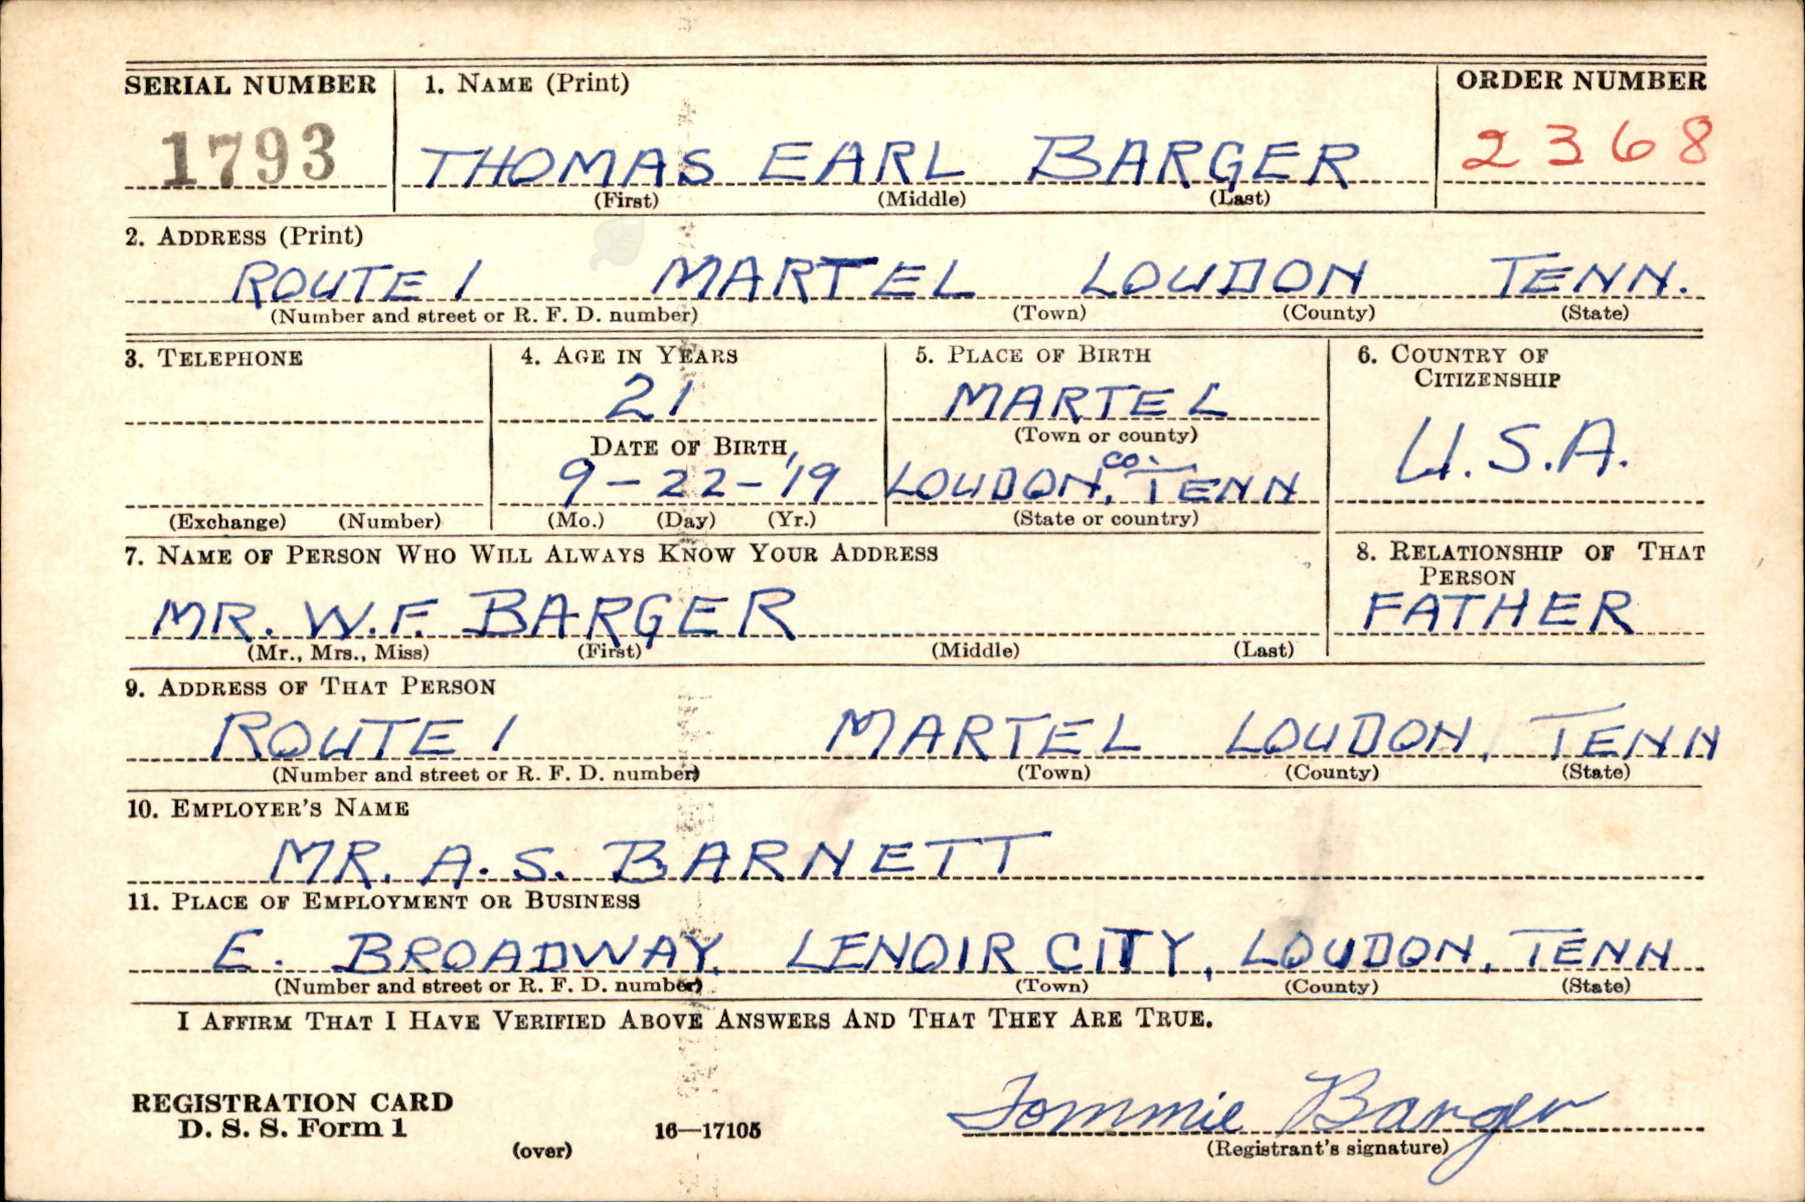 SERIAL NUMBER 1. NAME (Print) ORDER NUMBER
1793 THOMAS EARL BARGER 2368
(First) (Middle) (Last)
2. ADDRESS (Print)
ROUTE 1 MARTEL LOUDON TENN.
(Number and street or R. F. D. number) (Town) (County) (State)
3. TELEPHONE 4. AGE IN YEARS 5. PLACE OF BIRTH 6. COUNTRY OF
CITIZENSHIP
21 MARTEL
(Town or county)
DATE OF BIRTH U.S.A.
9-22-'19 LOUDON CO., TENN
(Exchange) (Number) (Mo.) (Day) (Yr.) (State or country)
7. NAME OF PERSON WHO WILL ALWAYS KNOW YOUR ADDRESS 8. RELATIONSHIP OF THAT
PERSON
MR. W.F. BARGER FATHER
(Mr., Mrs., Miss) (First) (Middle) (Last)
9. ADDRESS OF THAT PERSON
ROUTE 1 MARTEL LOUDON, TENN
(Number and street or R. F. D. number) (Town) (County) (State)
10. EMPLOYER'S NAME
MR. A. S. BARNETT
11. PLACE OF EMPLOYMENT OR BUSINESS
E. BROADWAY, LENOIR CITY, LOUDON, TENN
(Number and street or R. F. D. number) (Town) (County) (State)
I AFFIRM THAT I HAVE VERIFIED ABOVE ANSWERS AND THAT THEY ARE TRUE.
REGISTRATION CARD
D. S. S. Form 1 16—17105 Tommie Barger
(over) (Registrant's signature)